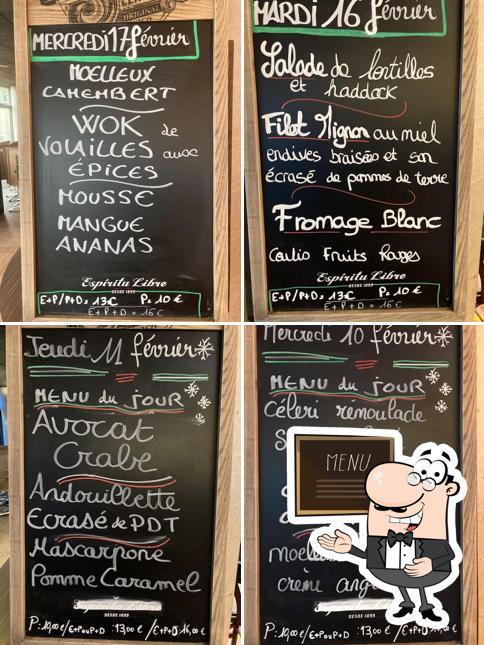 ORIGINAL
MERCREDI 17 février
MOELLEUX
CAMEMBERT
WOK de
VOLAILLES avec
ÉPICES
MOUSSE
MANGUE
ANANAS
Espíritu Libre
DESDE 1893
E+P/P+D: 13€ P: 10 €
E+P+D = 16€
MARDI 16 février
Salade de lentilles
et haddock
Filet Mignon au miel
endives braisées et son
écrasé de pommes de terre
Fromage Blanc
Coulis Fruits Rouges
Espíritu Libre
DESDE 1893
E+P/P+D: 13€ P: 10 €
E+P+D = 16€
Jeudi 11 février
MENU du JOUR
Avocat
Crabe
Andouillette
Ecrasé de PDT
Mascarpone
Pomme Caramel
DESDE 1893
P: 10,00€/E+PouP+D :13,00€ /E+P+D 16,00€
Mercredi 10 février
MENU du JOUR
Céleri rémoulade
MENU
moell
crème ang
DESDE 1893
P: 10,00€/E+PouP+D :13,00€ /E+P+D 16,00 €